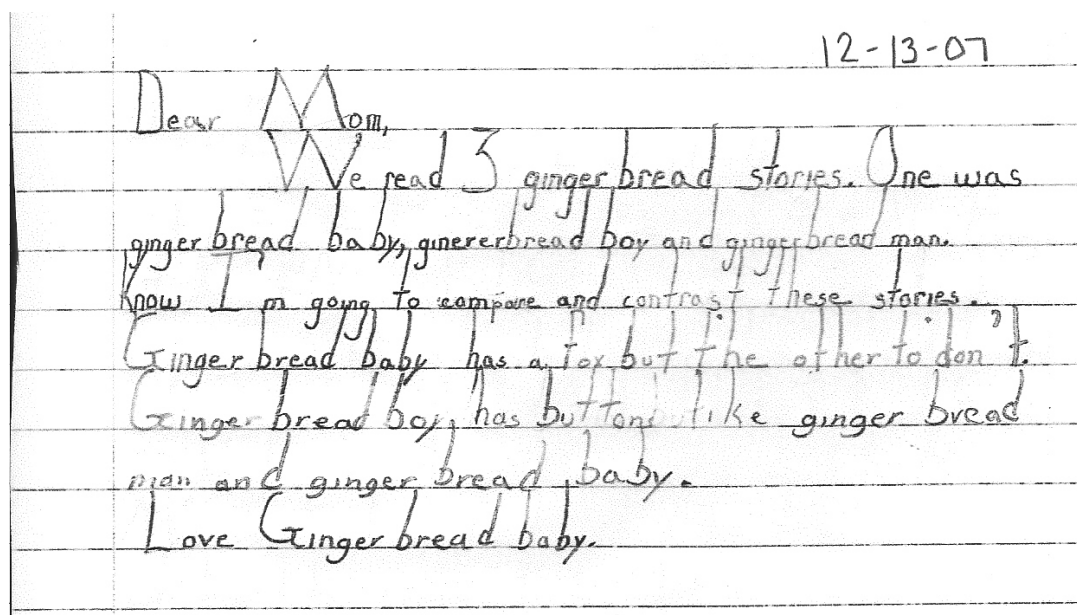 12-13-07
Dear Mom,
We read 3 ginger bread stories. One was
ginger bread baby, ginererbread boy and gingerbread man.
Know I'm going to compare and contrast these stories.
Ginger bread baby has a fox but the other to don't.
Ginger bread boy, has buttons like ginger bread
man and ginger bread baby.
Love Ginger bread baby.